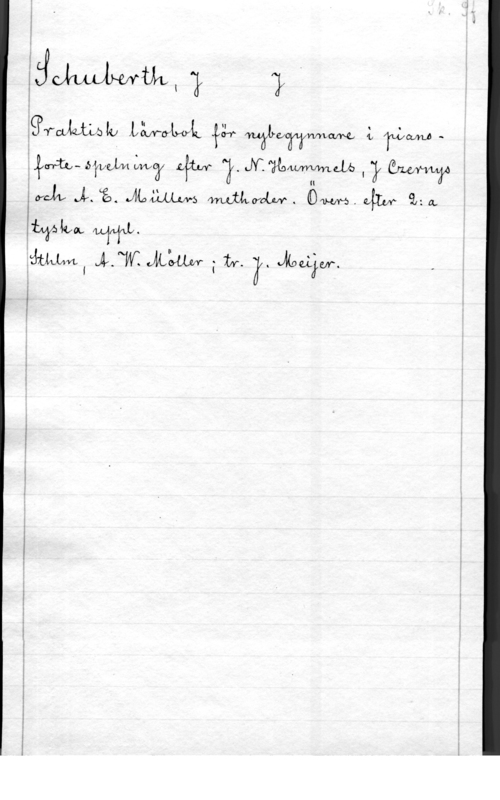 Schuberth, J J
Praktisk lärobok för nybegynnare i piano-
forte-spelning efter J. N. Hummels, J Czernys
och A. E. Müllers methoder. Övers. efter 2:a
tyska uppl.
Sthlm, A. W. Möller; tr. J. Meijer.